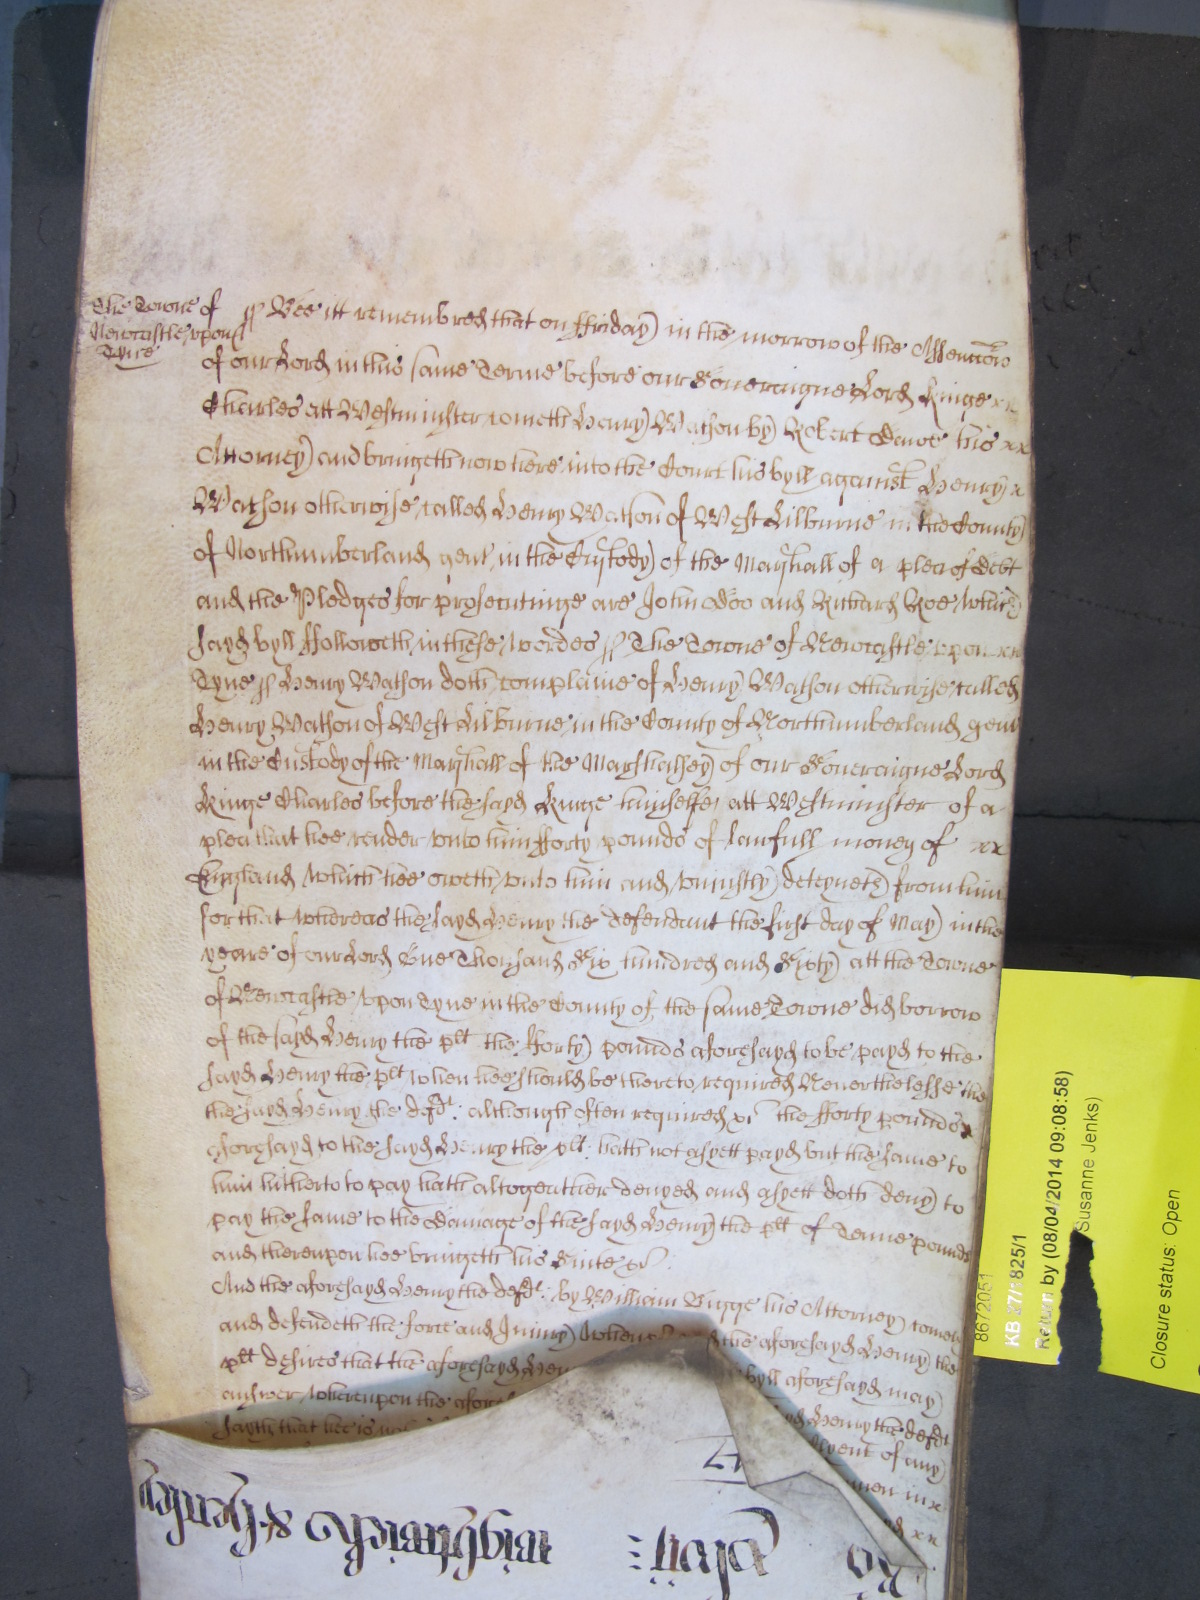 The Towne of
Newcastle upon
Tyne
Bee itt remembred that on ffriday in the morrow of the Assention
of our Lord in this same Terme before our Soveraigne Lord Kinge xx
Charles att Westminster cometh Henry Watson by Robert his xx
Attorney and bringeth now here into the Court his byll against Henry x
Watson otherwise called Henry Watson of West Lilburne in the County
of Northumberland gent in the Custody of the Marshall of a plea of debt
and the Pledges for prosecutinge are John Doo and Richard Roe which
sayd byll ffolloweth in these wordes ss The Towne of Newcastle upon xx
Tyne ss Henry Watson doth complaine of Henry Watson otherwise called
Henry Watson of West Lilburne in the County of Northumberland gent
in the Custody of the Marshall of the Marshalsey of our Soveraigne Lord
Kinge Charles before the sayd Kinge himselfe att Westminster of a
plea that hee render unto him fforty pounds of lawfull money of xx
England which hee oweth unto him and uniustly deteyneth from him
for that whereas the sayd Henry the defendant the first day of May in the
yeare of our Lord One Thousand Six hundred and Sixty att the Towne
of Newcastle upon Tyne in the County of the same Towne did borrow
of the sayd Henry the plt the fforty pounds aforesayd to be payd to the
sayd Henry the plt when hee should be thereto required Neverthelesse the
the sayd Henry the defdt: although often required &c the fforty pounds x
aforesayd to the sayd Henry the plt: hath not as yett payd but the same to
him hitherto to pay hath altogeather denyed and as yett doth deny to
pay the same to the Damage of the sayd Henry the plt of Tenne pounds
and thereupon hee bringeth his Suite &c
And the aforesayd Henry the defdt: by William Bigge his Attorney cometh
and defendeth the force and Iniury when the aforesayd Henry the
plt desires that the aforesayd Hen byll aforesayd may
answer whereupon the afore yd Henry the defdt
sayth that hee is not of any
men in x
xx
8672051
KB 27/1825/1
Return by (08/04/2014 09:08:58)
Susanne Jenks)
Closure status: Open